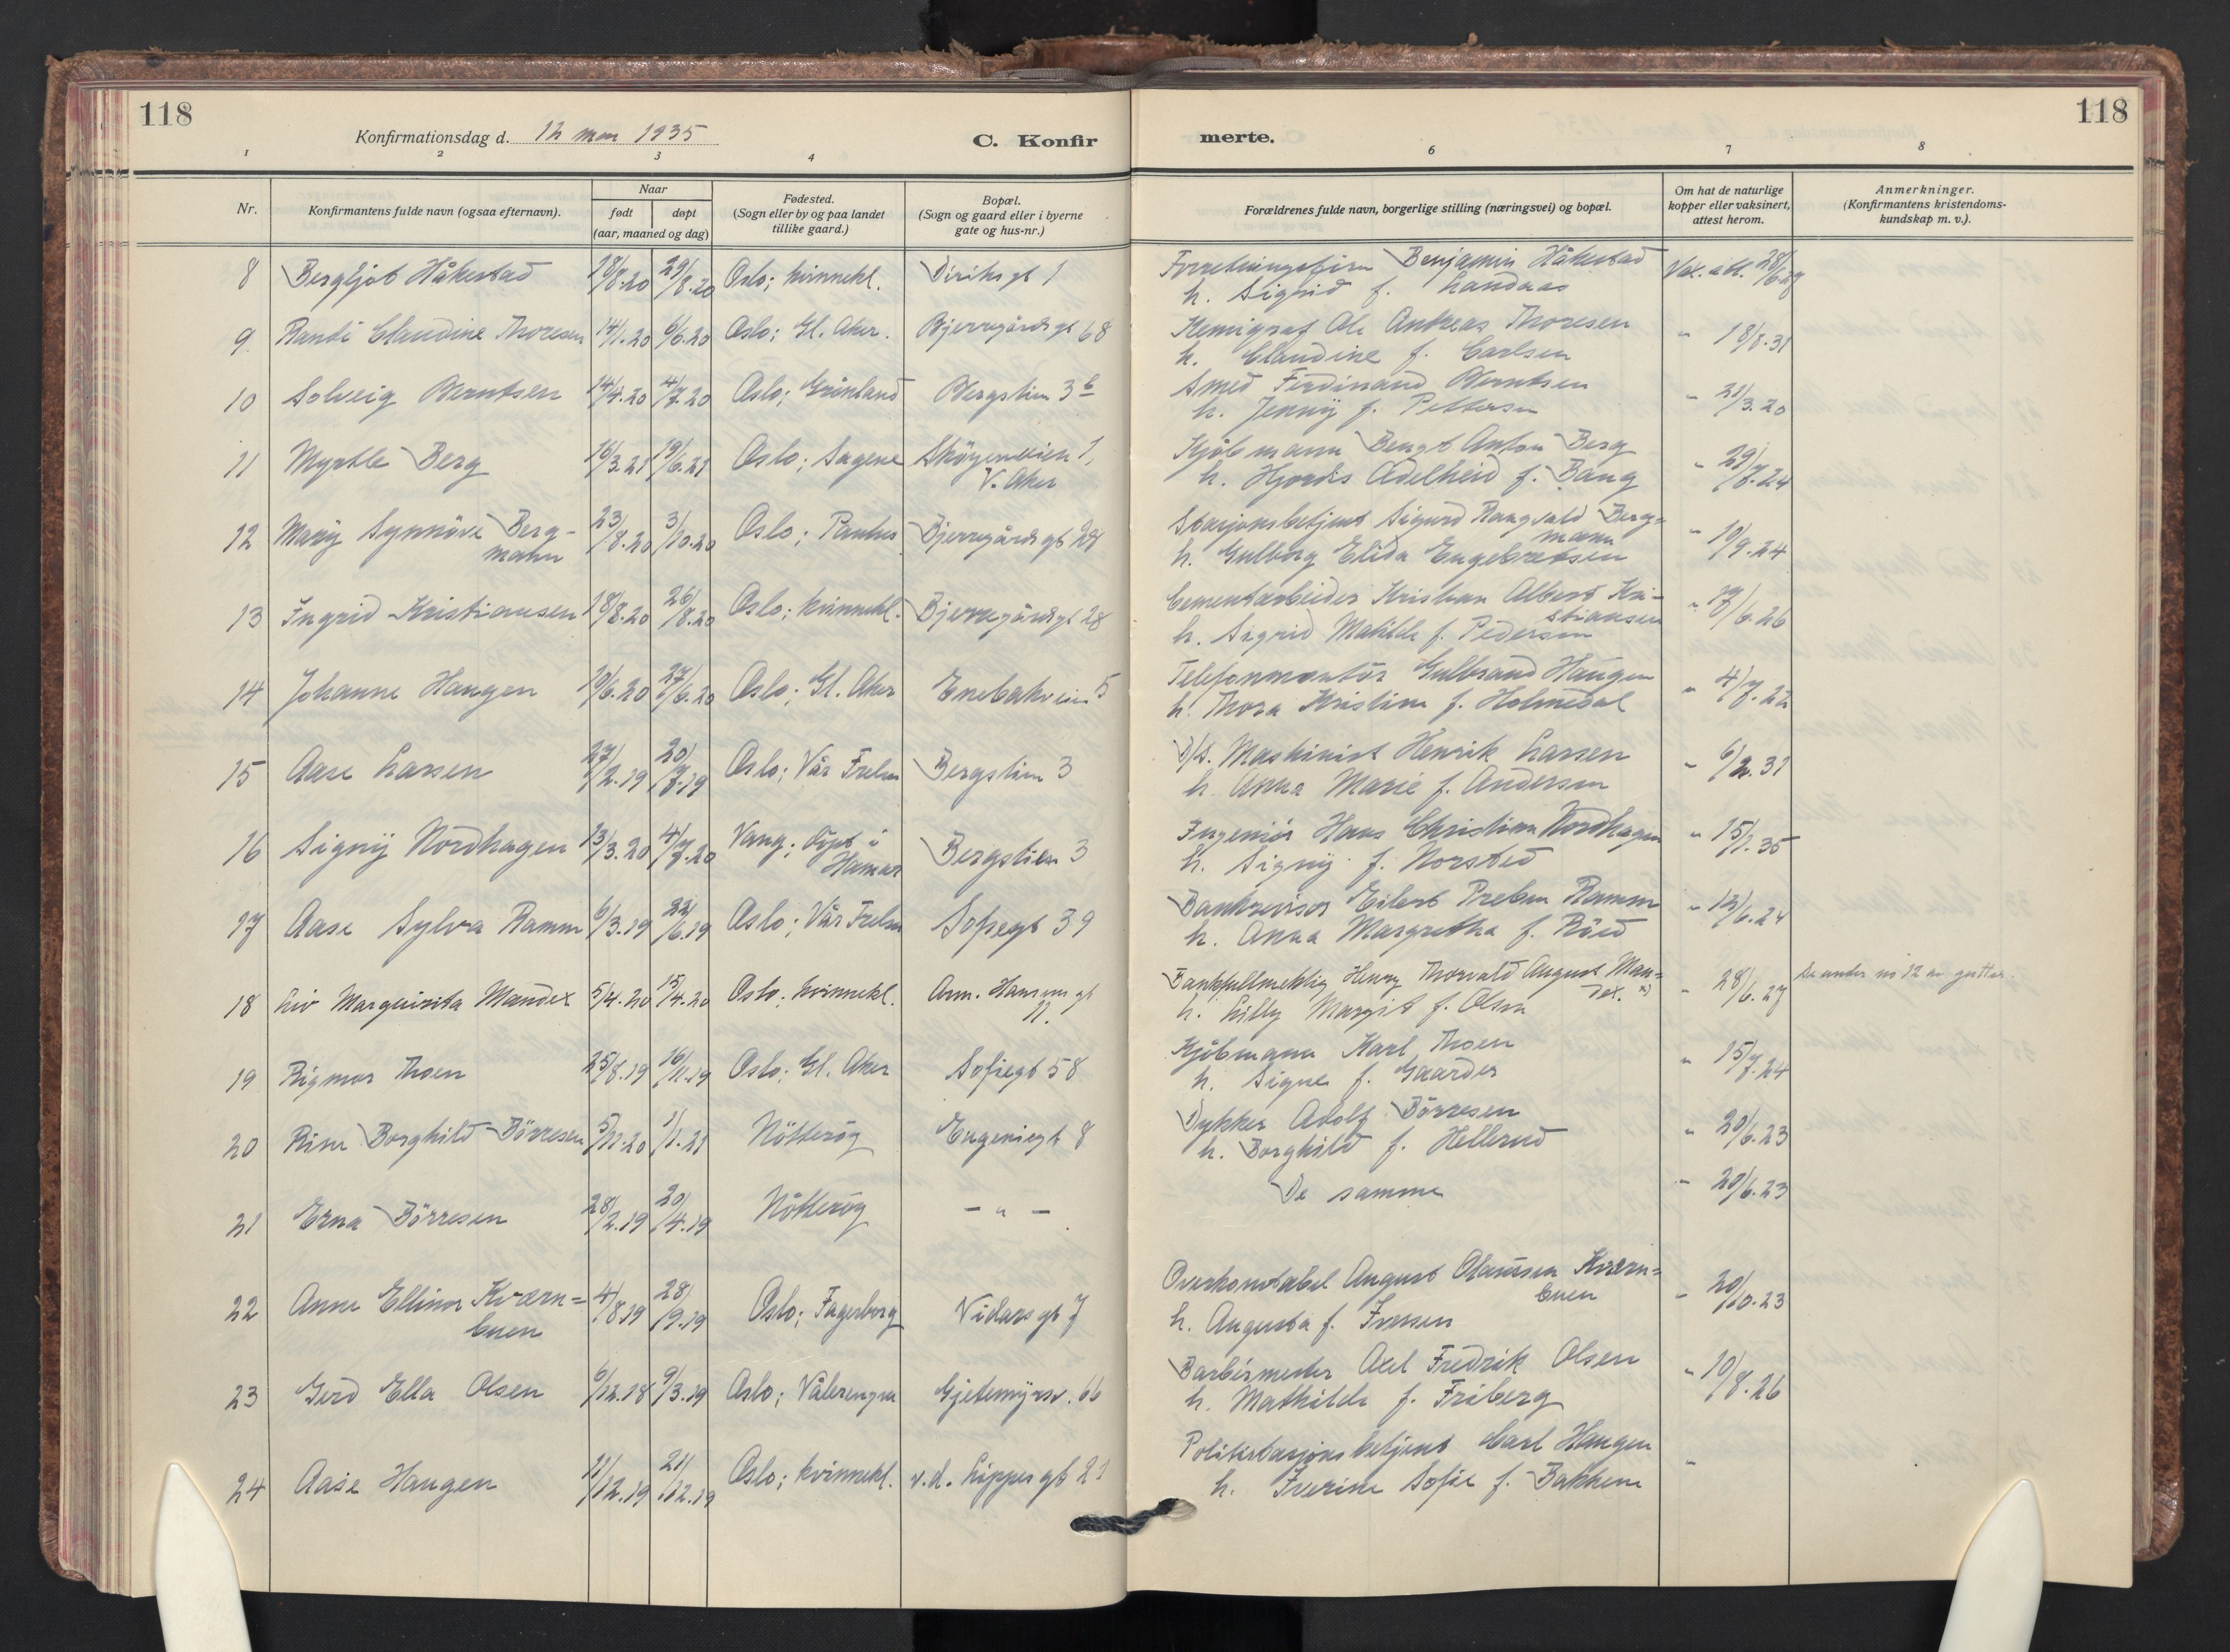 118
118
Konfirmationsdag d. 12 mai 1935
C. Konfir
merte.
1 2 3 4 6 7 8
Nr.
Konfirmantens fulde navn (ogsaa efternavn).
Naar
født døpt
(aar, maaned og dag)
Fødested.
(Sogn eller by og paa landet
tillike gaard.)
Bopæl.
(Sogn og gaard eller i byerne
gate og hus-nr.)
Forældrenes fulde navn, borgerlige stilling (næringsvei) og bopæl.
Om hat de naturlige
kopper eller vaksinert,
attest herom.
Anmerkninger.
(Konfirmantens kristendoms-
kundskap m. v.).
8 Bergljot Håkestad 18/8.20 29/8.20 Oslo; kvinnekl. Diriksgt 1 Benjamin Håkestad Vak. att. 28/6.27
h. Sigrid f. Landaas
9 Randi Claudine Thoresen 14/1.20 6/6.20 Oslo; Gl. Aker. Bjerregårdsgt 68 Kemigraf Ole Andreas Thoresen " 18/8.31
h. Claudine f. Carlsen
10 Solveig Berntsen 14/4.20 4/7.20 Oslo; Grönland Bergstien 3 b Smed Ferdinand Berntsen " 21/3.20
h. Jenny f. Pettersen
11 Myrtle Berg 16/3.21 19/6.21 Oslo; Sagene Skøyenveien 1, Kjöbmann Bengt Anton Berg " 29/7.24
V. Aker h. Hjördis Adelheid f. Bang
12 Mary Synnöve Berg- 23/8.20 3/10.20 Oslo; Paulus Bjerregårdsgt 29 Stasjonsbetjent Sigurd Ragnvald Berg= " 10/9.24
mann mann
h. Gulborg Elida Engebretsen
13 Ingrid Kristiansen 18/8.20 26/8.20 Oslo; kvinnekl. Bjerregårdsgt 28 Cementarbeider Kristian Albert Kri- " 17/6.26
stiansen
h. Sigrid Matilde f. Pedersen
14 Johanne Haugen 10/6.20 27/6.20 Oslo; Gl. Aker Enebakveien 5 Telefonmontör Gulbrand Haugen " 4/7.22
h. Thora Kristine f. Holmedal
15 Aase Larsen 27/2.19 20/7.19 Oslo; Vår Frelser Bergstien 3 D/S. Maskinist Henrik Larsen " 6/2.31
h. Anna Marie f. Andersen
16 Signy Nordhagen 13/3.20 4/7.20 Vang; döpt i Bergstien 3 Ingeniör Hans Christian Nordhagen " 15/1.35
Hamar h. Signy f. Norsted
17 Aase Sylva Ramm 6/3.19 22/6.19 Oslo; Vår Frelser Sofiegt 39 Bankrevisor Eilert Preben Ramm " 13/6.24
h. Anna Margretha f. Röed
18 Liv Marguirita Mandex 5/4.20 15/4.20 Oslo; kvinnekl. Arm. Hansens gt Bankfullmektig Henry Thorvald August Man= " 28/6.27 Se under nr 12 av gutter.
11. dex. x)
h. Lilly Margit f. Olsen
19 Rigmor Thoen 25/8.19 16/11.19 Oslo; Gl. Aker Sofiegt 58 Kjöbmann Karl Thoen " 15/7.24
h. Signe f. Gaarder
20 Borghild Börresen 5/11.20 1/1.21 Nötteröy Eugeniegt 8 Dykker Adolf Börresen " 20/6.23
h. Borghild f. Hellerud
21 Erna Börresen 28/2.19 20/4.19 Nötteröy - " - De samme " 20/6.23
22 Anne Ellinor Kværn= 4/8.19 28/9.19 Oslo; Fagerborg Vidars gt 7 Overkonstabel August Olaussen Kværn= " 20/10.23
buen buen
h. Augusta f. Iversen
23 Gerd Ella Olsen 6/12.18 9/3.19 Oslo; Vålerengen Gjetemyrsv. 66 Barbermester Axel Fredrik Olsen " 10/8.26
h. Mathilde f. Friberg
24 Aase Haugen 11/12.19 21/12.19 Oslo; kvinnekl. v.d. Lippes gt 21 Politistasjonsbetjent Carl Haugen "
h. Iverine Sofie f. Bakkene